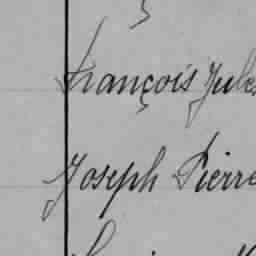 François Jules
Joseph Pierre